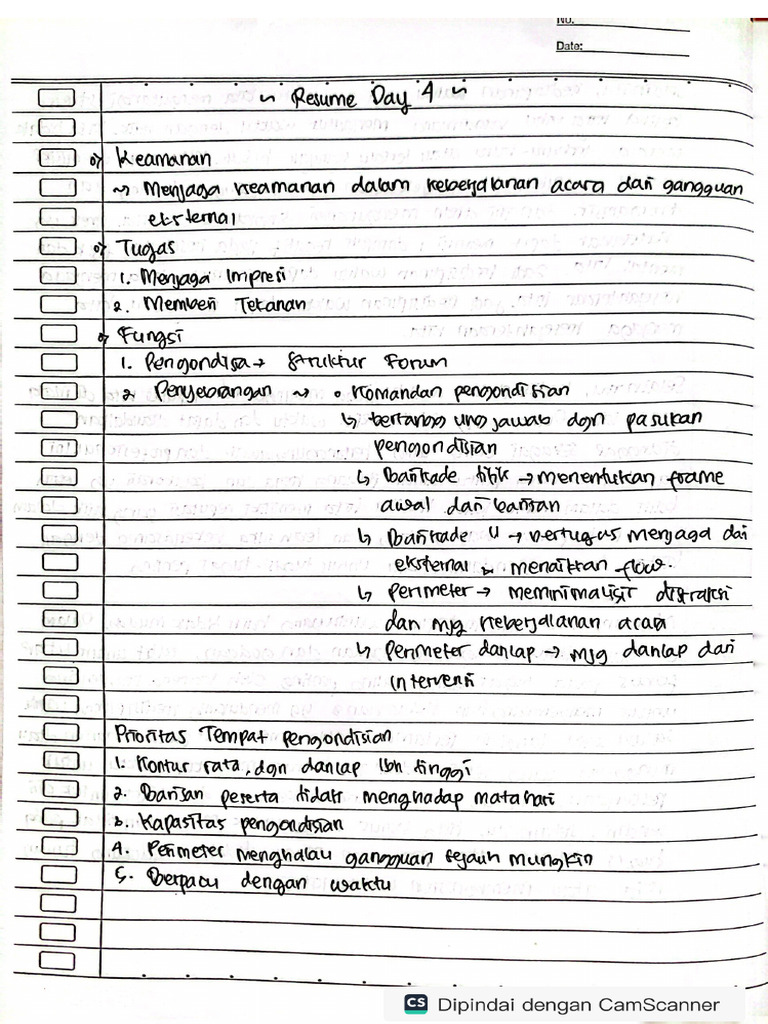 No.
Date:
~ Resume Day 4 ~
Keamanan
~> Menjaga keamanan dalam keberjalanan acara dari gangguan
eksternal
Tugas
1. Menjaga Impresi
2. Memberi Tekanan
Fungsi
1. Pengondisa → Struktur Forum
2. Penyeorangan ~> • Komandan pengondisian
↳ bertanggung jawab dgn pasukan
pengondisian
↳ Barikade titik → menentukan frame
awal dari barisan
↳ Barikade U → bertugas menjaga dari
eksternal & menaikkan flow.
↳ Perimeter → meminimalisir distraksi
dan mjg keberjalanan acara
↳ Perimeter danlap → mjg danlap dari
intervensi
Prioritas Tempat Pengondisian
1. Kontur rata, dgn danlap lbh tinggi
2. Barisan peserta tidak menghadap matahari
3. Kapasitas pengondisian
4. Perimeter menghalau gangguan sejauh mungkin
5. Berpacu dengan waktu
CS Dipindai dengan CamScanner